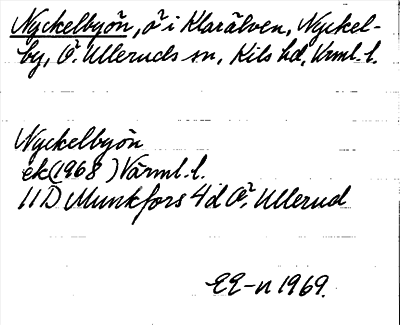 Nyckelbyön, ö i Klarälven, Nyckel-
by, Ö. Ulleruds sn, Kils hd, Vrml. l.
Nyckelbyön
ek (1968) Värml. l.
11 D Munkfors 4 d Ö. Ullerud
EE-n 1969.